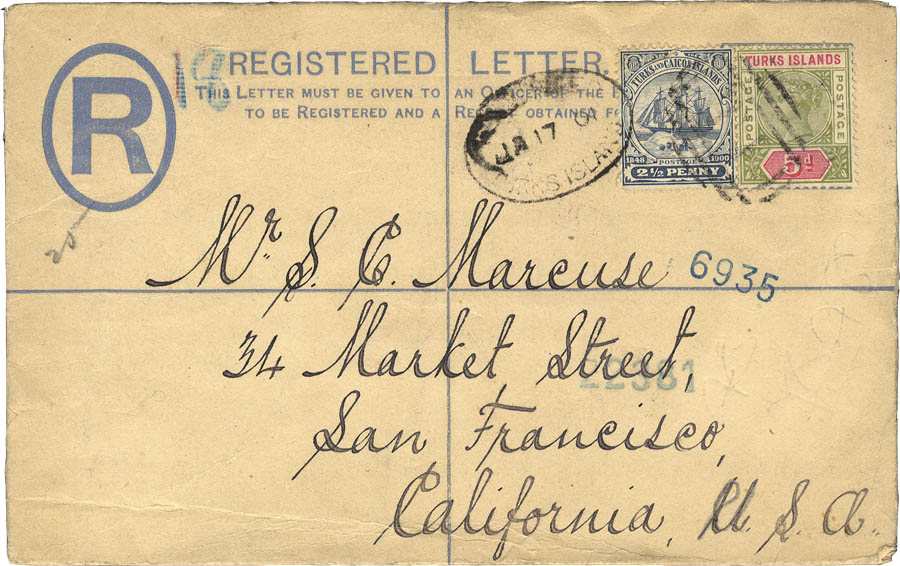 R
REGISTERED LETTER
THIS LETTER MUST BE GIVEN TO AN OFFICER OF THE
TO BE REGISTERED AND A OBTAINED
JA 17
TURKS ISLAND
TURKS AND CAICOS ISLANDS
1848 POSTAGE 1900
2½ PENNY
TURKS ISLANDS
POSTAGE POSTAGE
5d
20
Mr. S. C. Marcuse
6935
34 Market Street,
22381
San Francisco,
California, U. S. A.